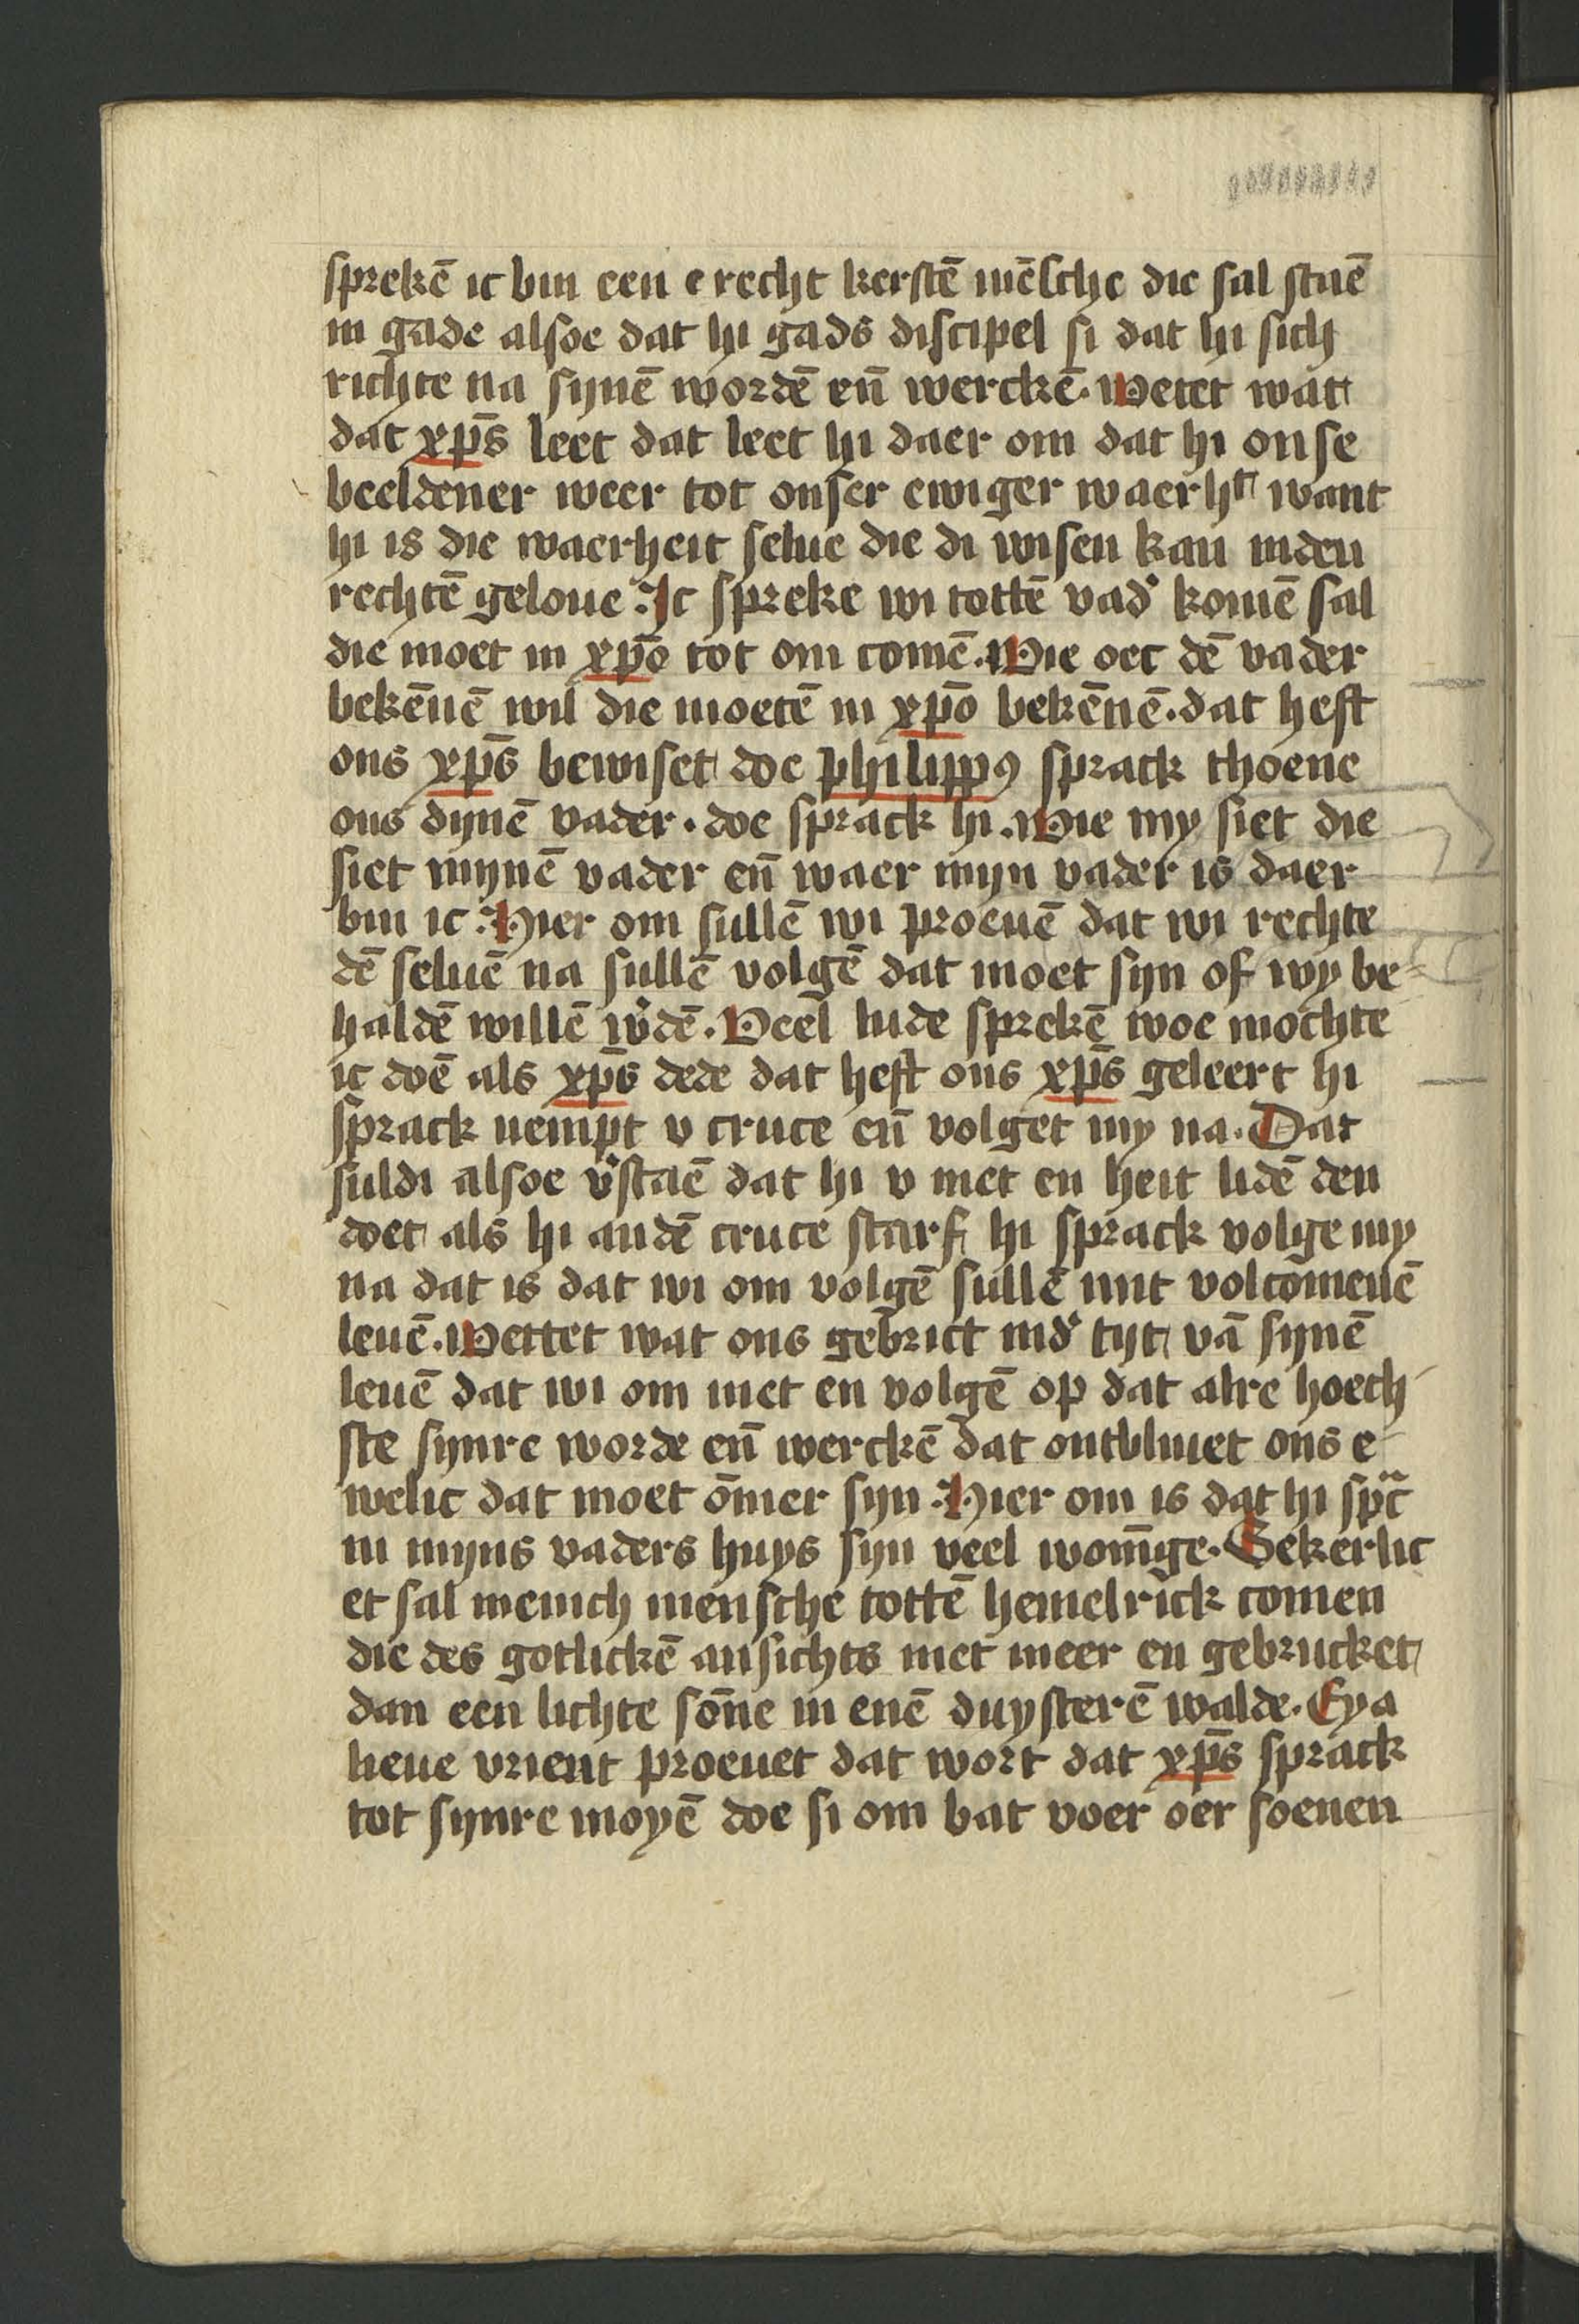 sprekē ic bin een e recht kerstē mēsche die sal staē
in gade alsoe dat hi gads discipel si dat hi sich
richte na synē wordē eñ werckē. Wetet wat
dat xp̄s leet dat leet hi daer om dat hi onse
beeldener weer tot onser ewiger waerhᵗ want
hi is die waerheit selue die di wisen kan inden
rechtē geloue. Ic spreke wi tottē vad᾽ komē sal
die moet in xp̄o tot om comē. Wie oec dē vader
bekēnē wil die moetē in xp̄o bekēnē. dat heft
ons xp̄s bewiset doe philippꝰ sprack thoene
ons dynē vader. doe sprack hi. Wie my siet die
siet mynē vader eñ waer myn vader is daer
bin ic. Hier om sullē wi proeuē dat wi rechte
dē seluē na sullē volgē dat moet syn of wy be-
haldē willē w᾽dē. Veel lude sprekē woe mochte
ic doē als xp̄s dede dat heft ons xp̄s geleert hi
sprack nempt v cruce eñ volget my na. Dat
suldi alsoe v᾽staē dat hi v niet en heit lidē den
doet als hi andē cruce starf hi sprack volge my
na dat is dat wi om volgē sullē mit volcōmenē
leuē. Wettet wat ons gebrict ind᾽ tyt vā synē
leuē dat wi om niet en volgē op dat alre hoech
ste synre worde eñ werckē dat ontbliuet ons e-
welic dat moet ōmer syn. Hier om is dat hi spc̄
in myns vaders huys syn veel womīge. Sekerlic
et sal menich mensche tottē hemelrick comen
die des gotlickē ansichts niet meer en gebrucket
dan een lichte sōne in enē duysterē walde. Eya
lieue vrient proeuet dat wort dat xp̄s sprack
tot synre moyē doe si om bat voer oer soenen